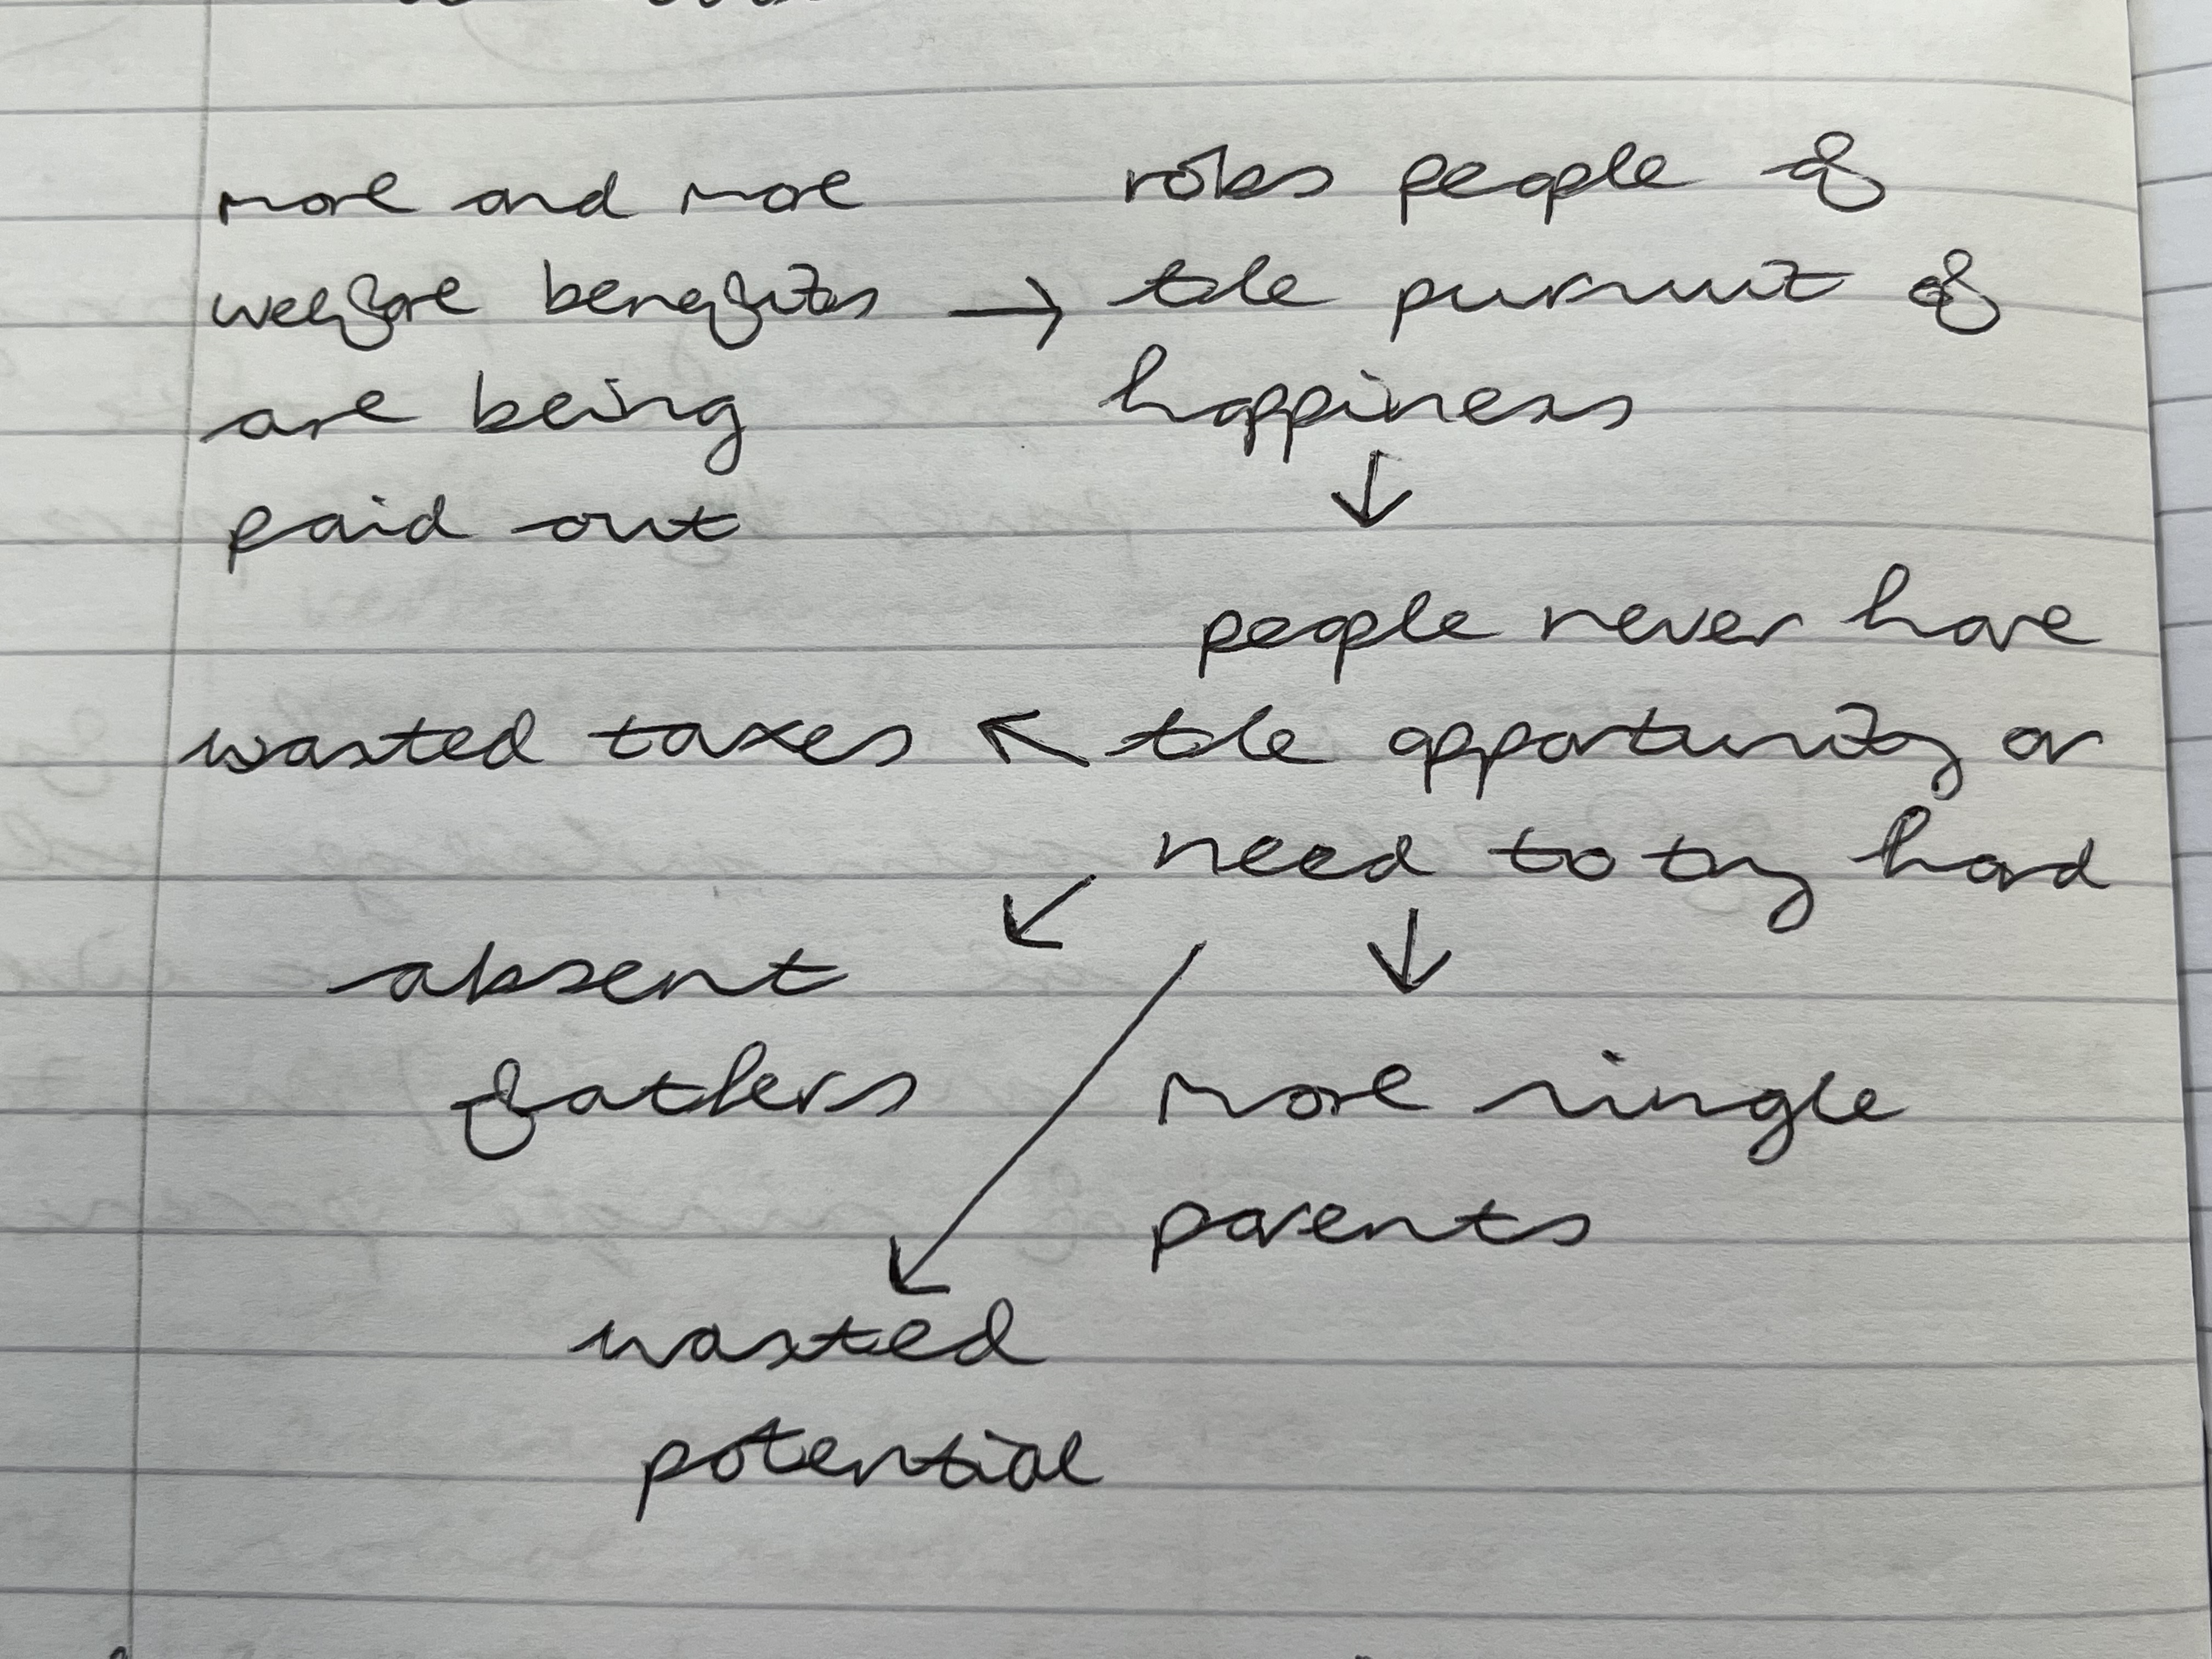 more and more
welfare benefits
are being
paid out
→
robs people of
the pursuit of
happiness
↓
people never have
the opportunity or
need to try hard
←
wasted taxes
↙
absent
fathers
↓
more single
parents
↙
wasted
potential